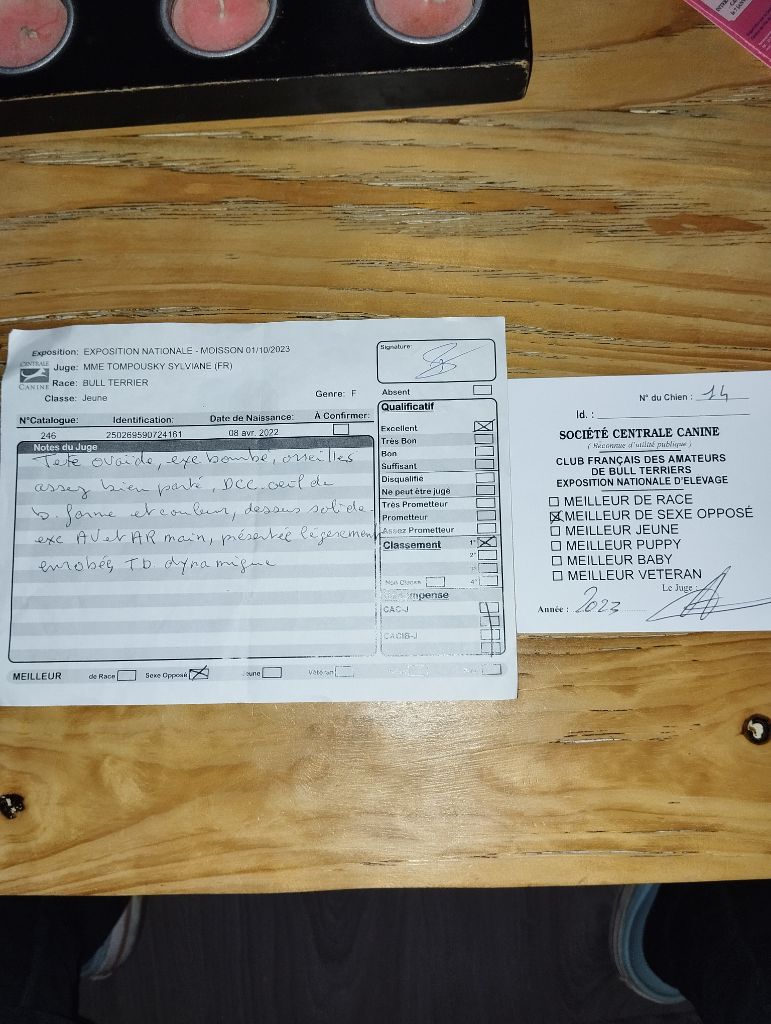 Exposition: EXPOSITION NATIONALE - MOISSON 01/10/2023
Juge: MME TOMPOUSKY SYLVIANE (FR)
Race: BULL TERRIER
Classe: Jeune
Genre: F
CENTRALE
CANINE
Signature:
Absent
N°Catalogue: Identification: Date de Naissance: À Confirmer:
246 250269590724161 08 avr. 2022
Notes du Juge
Tête ovoïde, exc bombé, oreilles
assez bien porté, DCC. oeil de
b. forme et couleur, dessus solide.
exc AV et AR main, présentée légèrement
enrobée, T.b. dynamique
Qualificatif
Excellent
Très Bon
Bon
Suffisant
Disqualifié
Ne peut être jugé
Très Prometteur
Prometteur
Assez Prometteur
Classement 1°
2°
3°
Non Classé 4°
CAC-J
CACIB-J
MEILLEUR de Race Sexe Opposé Jeune Vétéran
N° du Chien : 14
Id. :
SOCIÉTÉ CENTRALE CANINE
( Reconnue d'utilité publique )
CLUB FRANÇAIS DES AMATEURS
DE BULL TERRIERS
EXPOSITION NATIONALE D'ELEVAGE
MEILLEUR DE RACE
MEILLEUR DE SEXE OPPOSÉ
MEILLEUR JEUNE
MEILLEUR PUPPY
MEILLEUR BABY
MEILLEUR VETERAN
Le Juge :
Année : 2023